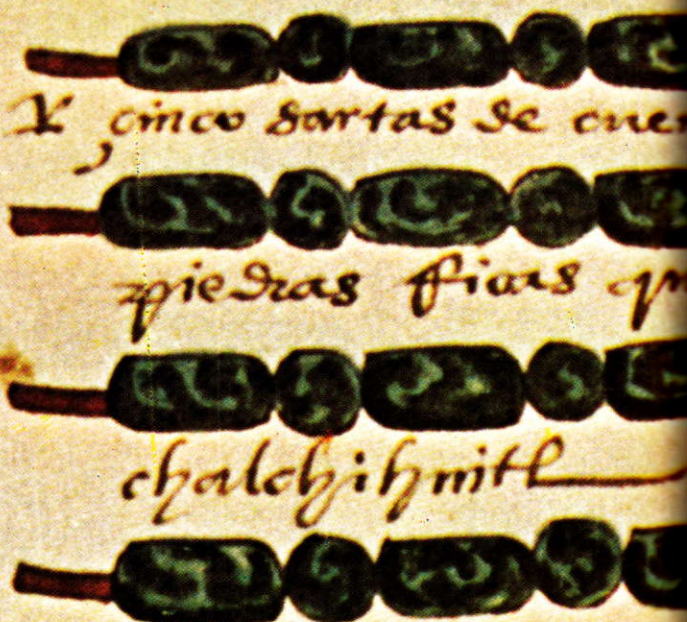 Y cinco sartas de cuen
piedras ficas qu
chalchihuitl